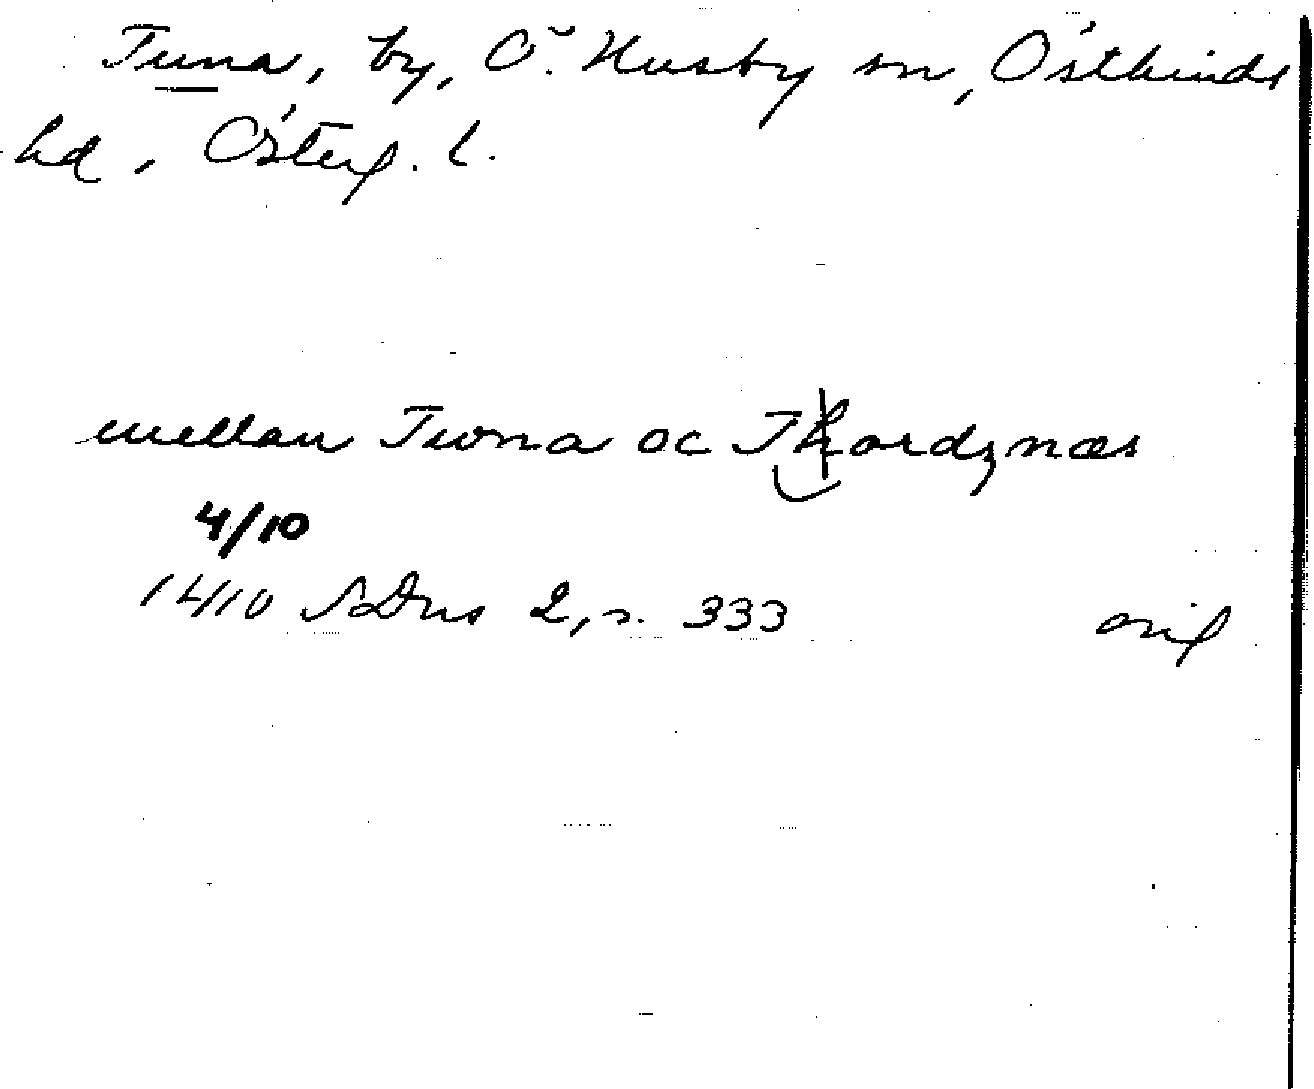 Tuna, by, Ö. Husby sn, Östkinds
hd, Österg. l.
mellan Twna oc Thordznæs
4/10
14/10 SDns 2, s. 333 orig